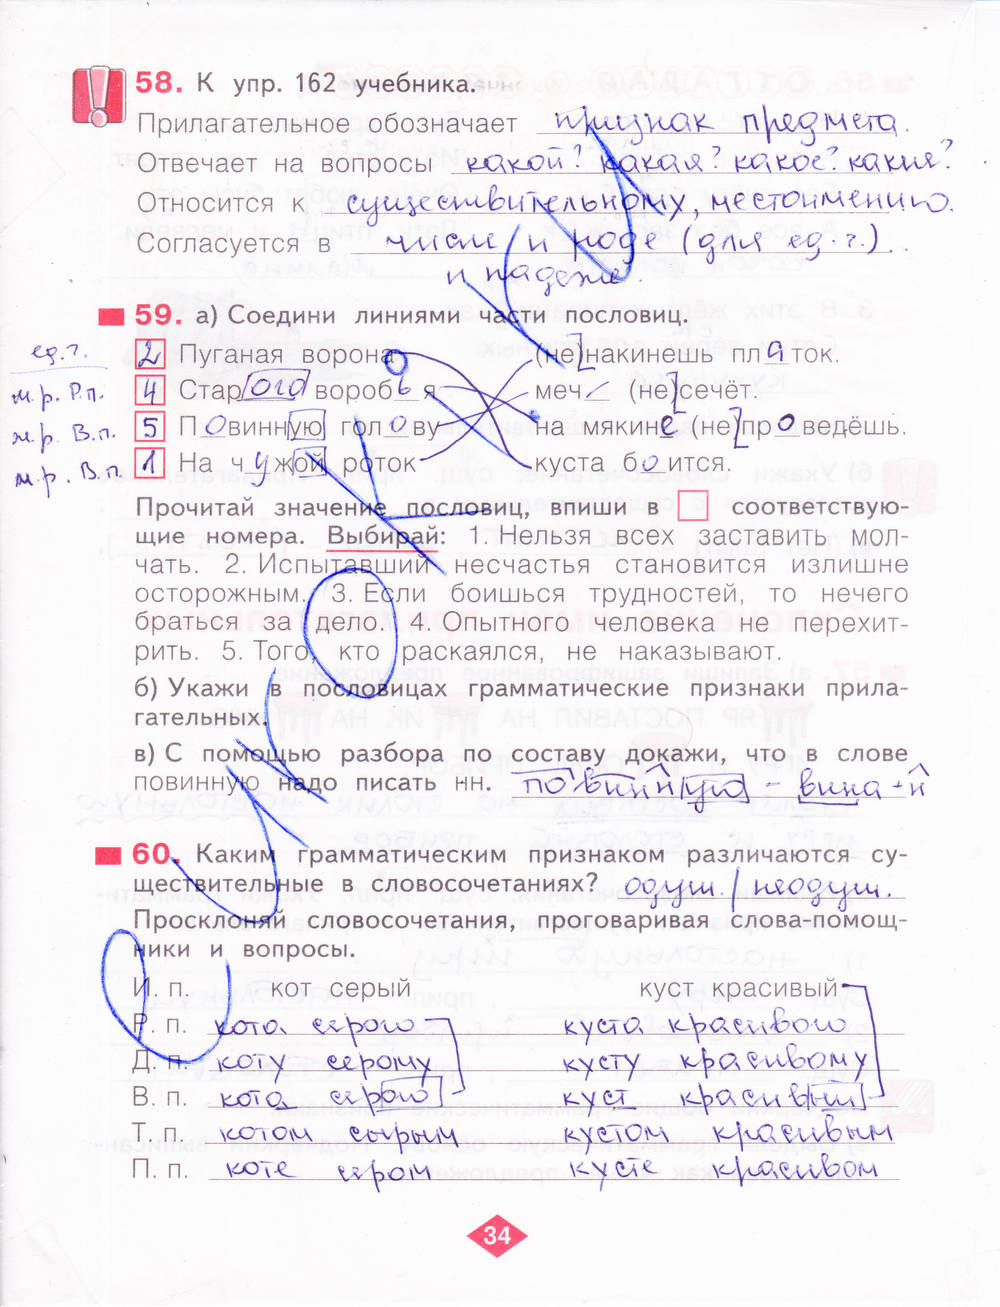 58. К упр. 162 учебника.
Прилагательное обозначает признак предмета.
Отвечает на вопросы какой? какая? какое? какие?
Относится к существительному, местоимению.
Согласуется в числе и роде (для ед.ч.)
и падеже.
59. а) Соедини линиями части пословиц.
ед.ч.
2 Пуганая ворона (не)накинешь пляток.
м.р. Р.п. 4 Старого воробья меч (не)сечёт.
м.р. В.п. 5 Повинную голову на мякине (не)проведёшь.
м.р. В.п. 1 На чужой роток куста боится.
Прочитай значение пословиц, впиши в соответствую-
щие номера. Выбирай: 1. Нельзя всех заставить мол-
чать. 2. Испытавший несчастья становится излишне
осторожным. 3. Если боишься трудностей, то нечего
браться за дело. 4. Опытного человека не перехит-
рить. 5. Того, кто раскаялся, не наказывают.
б) Укажи в пословицах грамматические признаки прила-
гательных.
в) С помощью разбора по составу докажи, что в слове
повинную надо писать нн. повинную - вина + н
60. Каким грамматическим признаком различаются су-
ществительные в словосочетаниях? одуш. / неодуш.
Просклоняй словосочетания, проговаривая слова-помощ-
ники и вопросы.
И. п. кот серый куст красивый
Р. п. кота серого куста красивого
Д. п. коту серому кусту красивому
В. п. кота серого куст красивый
Т. п. котом серым кустом красивым
П. п. коте сером кусте красивом
34